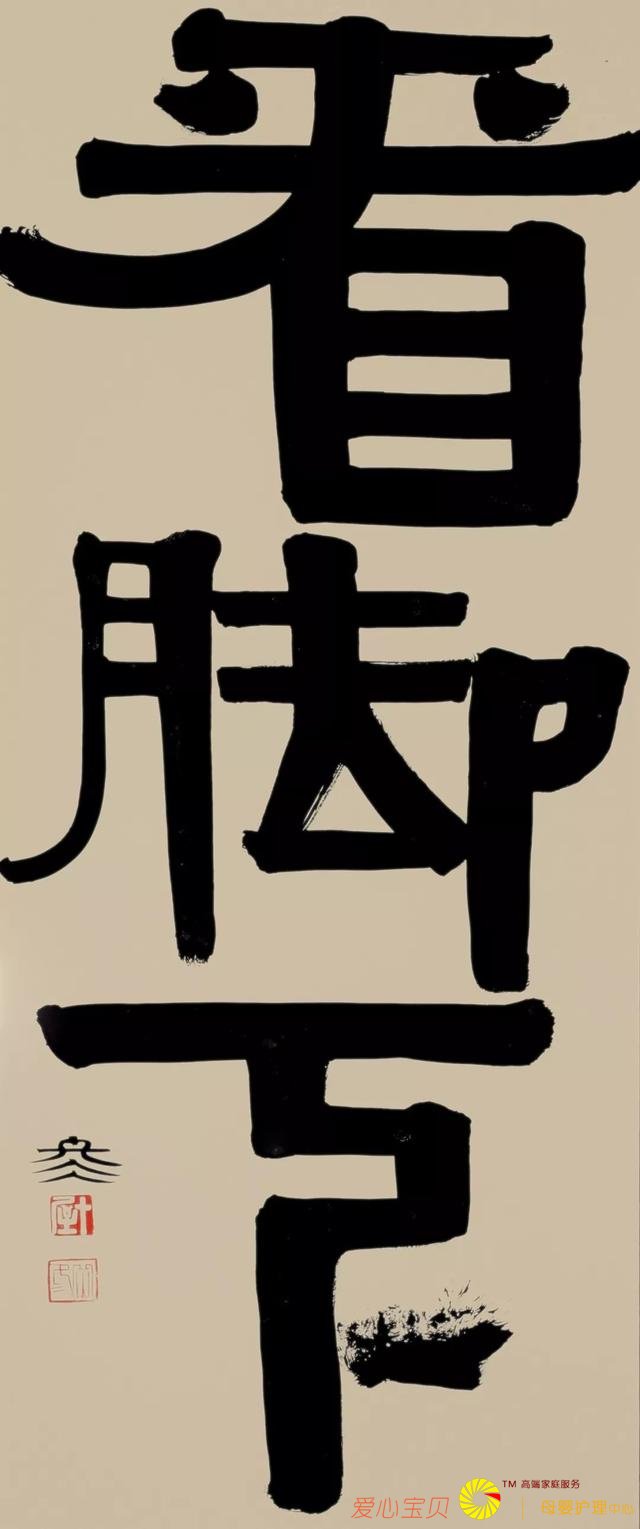 看
脚
下
爱心宝贝
TM 高端家庭服务
母婴护理中心